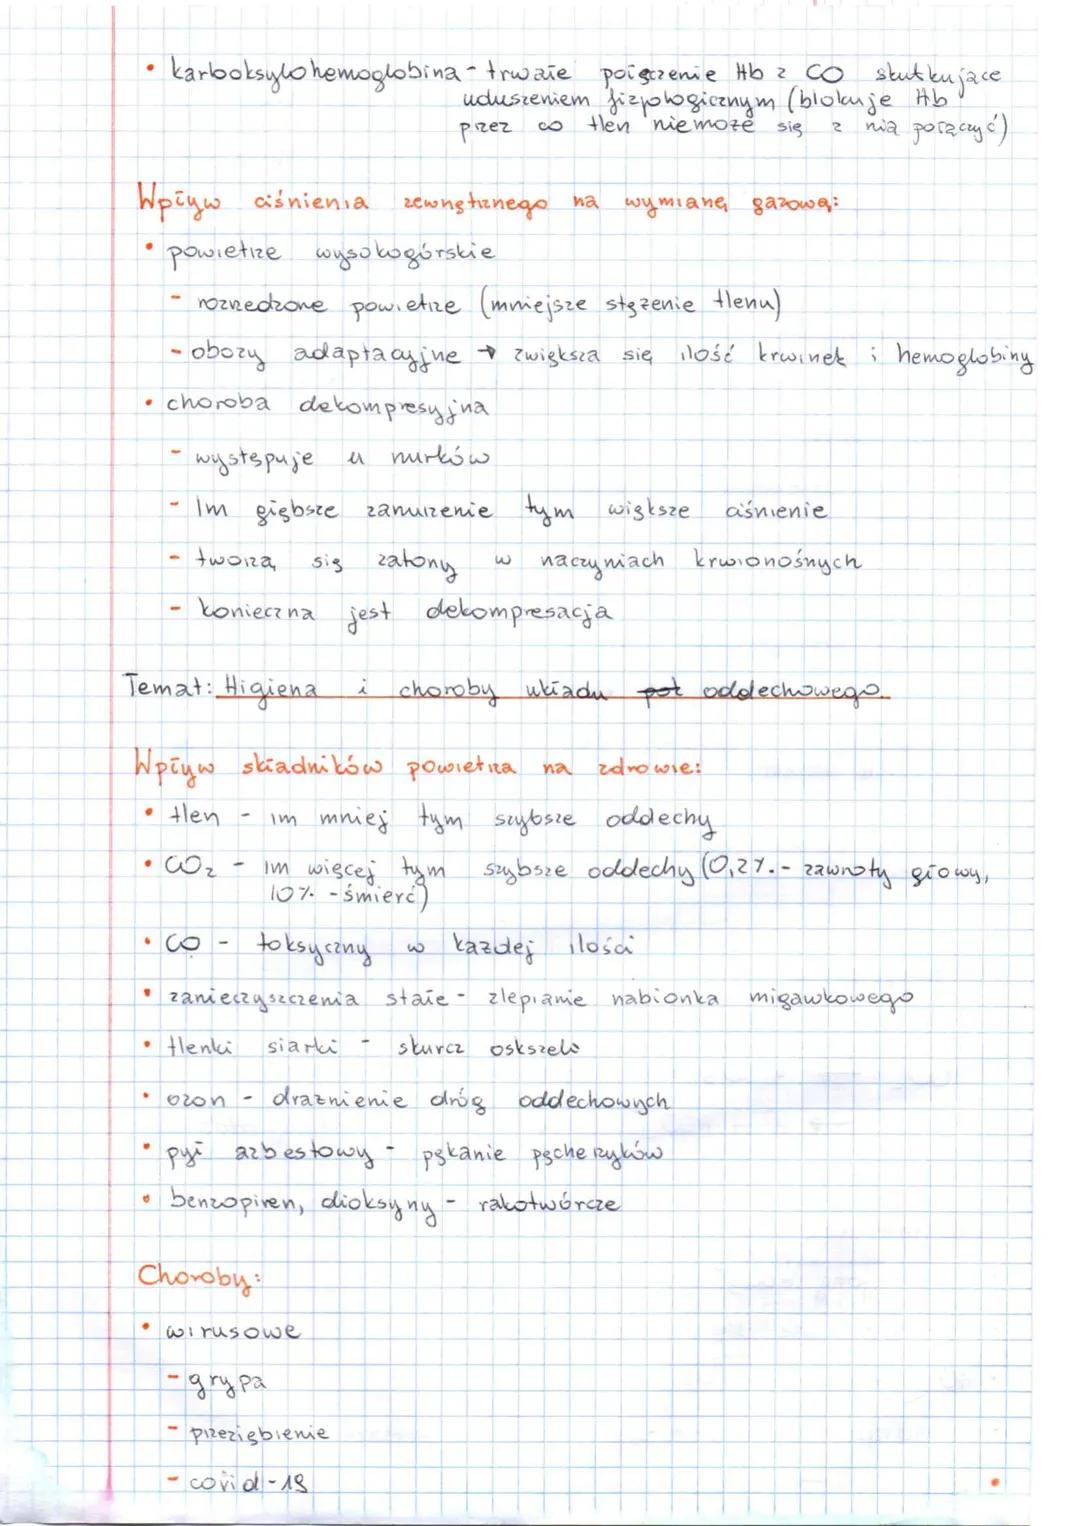 • karboksylohemoglobina - trwałe połączenie Hb z CO skutkujące
uduszeniem fizjologicznym (blokuje Hb
przez co tlen niemoże się z nią połączyć)
Wpływ ciśnienia zewnętrznego na wymianę gazową:
• powietrze wysokogórskie
- rozrzedzone powietrze (mniejsze stężenie tlenu)
- obozy adaptacyjne → zwiększa się ilość krwinek i hemoglobiny
• choroba dekompresyjna
- występuje u nurków
- Im głębsze zanurzenie tym większe ciśnienie
- tworzą się zatony w naczyniach krwionośnych
- konieczna jest dekompresacja
Temat: Higiena i choroby układu pot oddechowego.
Wpływ składników powietrza na zdrowie:
• tlen - im mniej tym szybsze oddechy
• CO₂ - im więcej tym szybsze oddechy (0,2% - zawroty głowy,
10% - śmierć)
• CO - toksyczny w każdej ilości
• zanieczyszczenia stałe - zlepianie nabłonka migawkowego
• tlenki siarki - skurcz oskszelo
• ozon - drażnienie dróg oddechowych
• pył azbestowy - pękanie pęcherzyków
• benzopiren, dioksyny - rakotwórcze
Choroby:
• wirusowe
- grypa
- przeziębienie
- covid-19
•